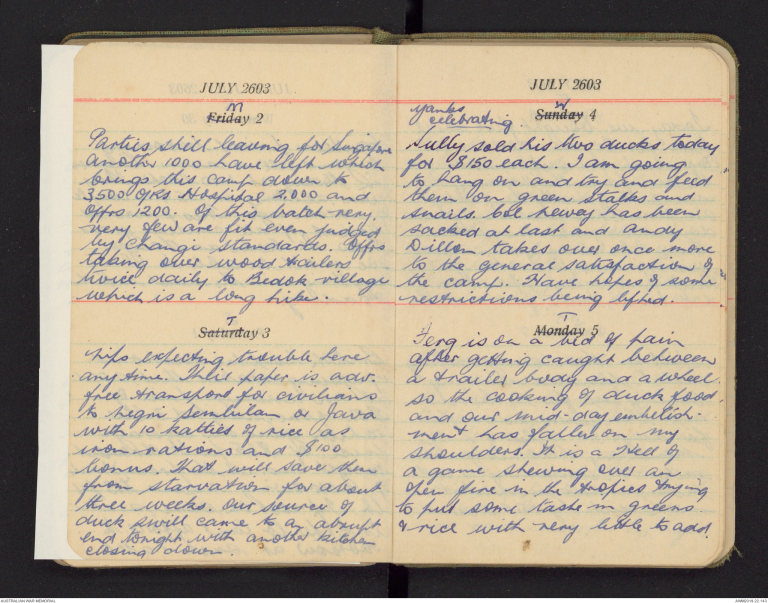 JULY 2603
M
Friday 2
Parties still leaving for Singapore
another 1000 have left which
brings this camp down to
3500 O/Rs Hospital 2,000 and
Offrs 1200. Of this batch very,
very few are fit even judged
by Changi standards. Offrs
taking over wood trailers
twice daily to Bedok village
which is a long hike.
T
Saturday 3
Nips expecting trouble here
any time. Their paper is adv.
free transport for civilians
to Negri Sembilan or Java
with 10 katties of rice as
iron rations and $100
bonus. That will save them
from starvation for about
three weeks. Our source of
duck swill came to an abrupt
end tonight with another kitchen
closing down.
JULY 2603
Yanks
celebrating.
W
Sunday 4
Sully sold his two ducks today
for $150 each. I am going
to hang on and try and feed
them on green stalks and
snails. Col Newey has been
sacked at last and Andy
Dillon takes over once more
to the general satisfaction of
the camp. Have hopes of some
restrictions being lifted.
T
Monday 5
Ferg is on a bed of pain
after getting caught between
a trailer body and a wheel
so the cooking of duck food,
and our mid-day embelish-
ment has fallen on my
shoulders. It is a Hell of
a game stewing over an
open fire in the tropics trying
to put some taste in greens
& rice with very little to add.
AUSTRALIAN WAR MEMORIAL